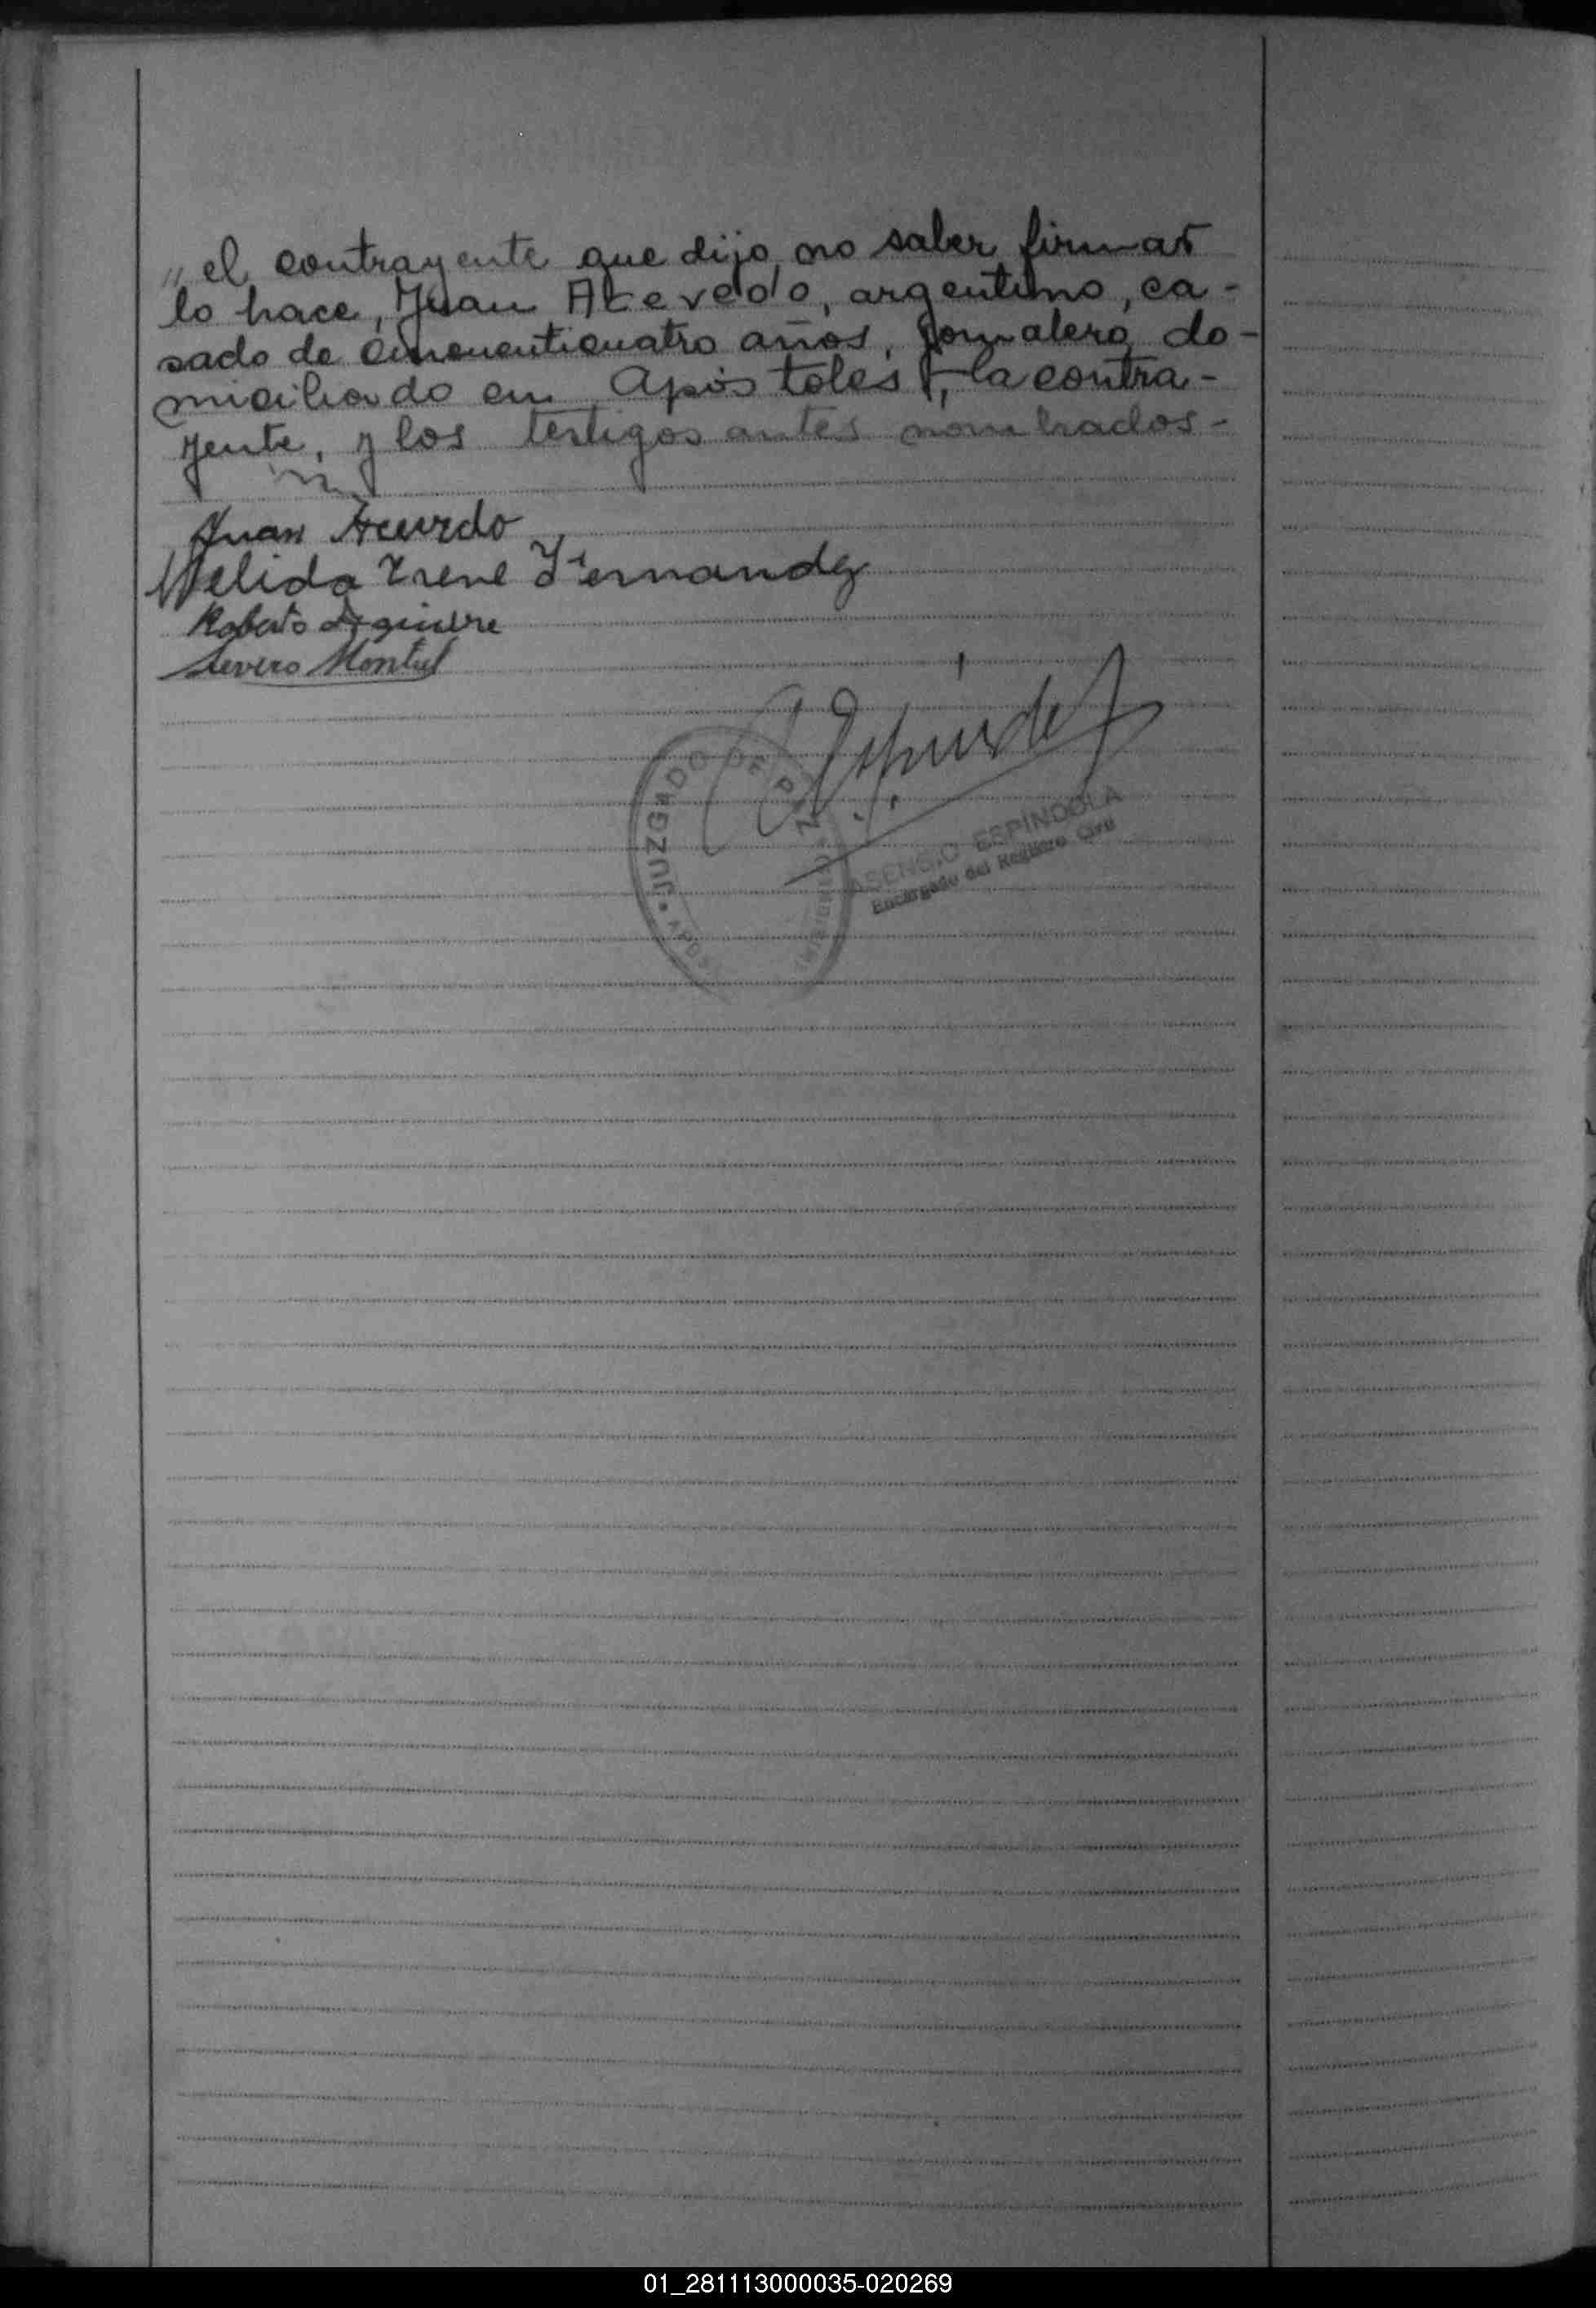 „ el contrayente que dijo no saber firmar
lo hace, Juan Acevedo, argentino, ca-
sado de cincuenticuatro años, jornalero, do-
miciliado en Apóstoles, la contra-
yente, y los testigos antes nombrados-
Juan Acevedo
Nelida Irene Fernandez
Roberto
Severo Montiel
JUZGADO DE PAZ
ASENSIO ESPÍNDOLA
Encargado del Registro Civil
01_281113000035-020269